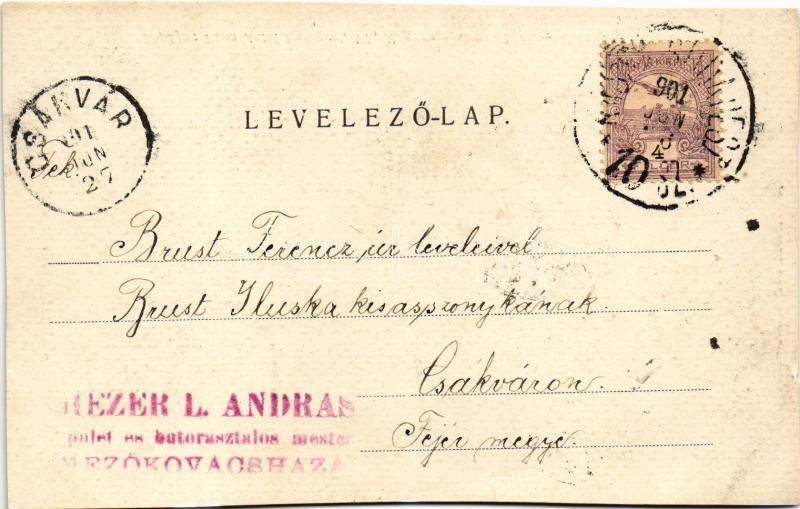 LEVELEZŐ-LAP.
CSÁKVÁR
901
JUN
27
901
JUN
10
Tek.
Brust Ferencz úr leveleivel
Brust Iluska kisasszonykának
Csákváron.
Fejér megye.
REZER L. ANDRAS
pulet es butorasztalos mester
MEZŐKOVACSHAZA